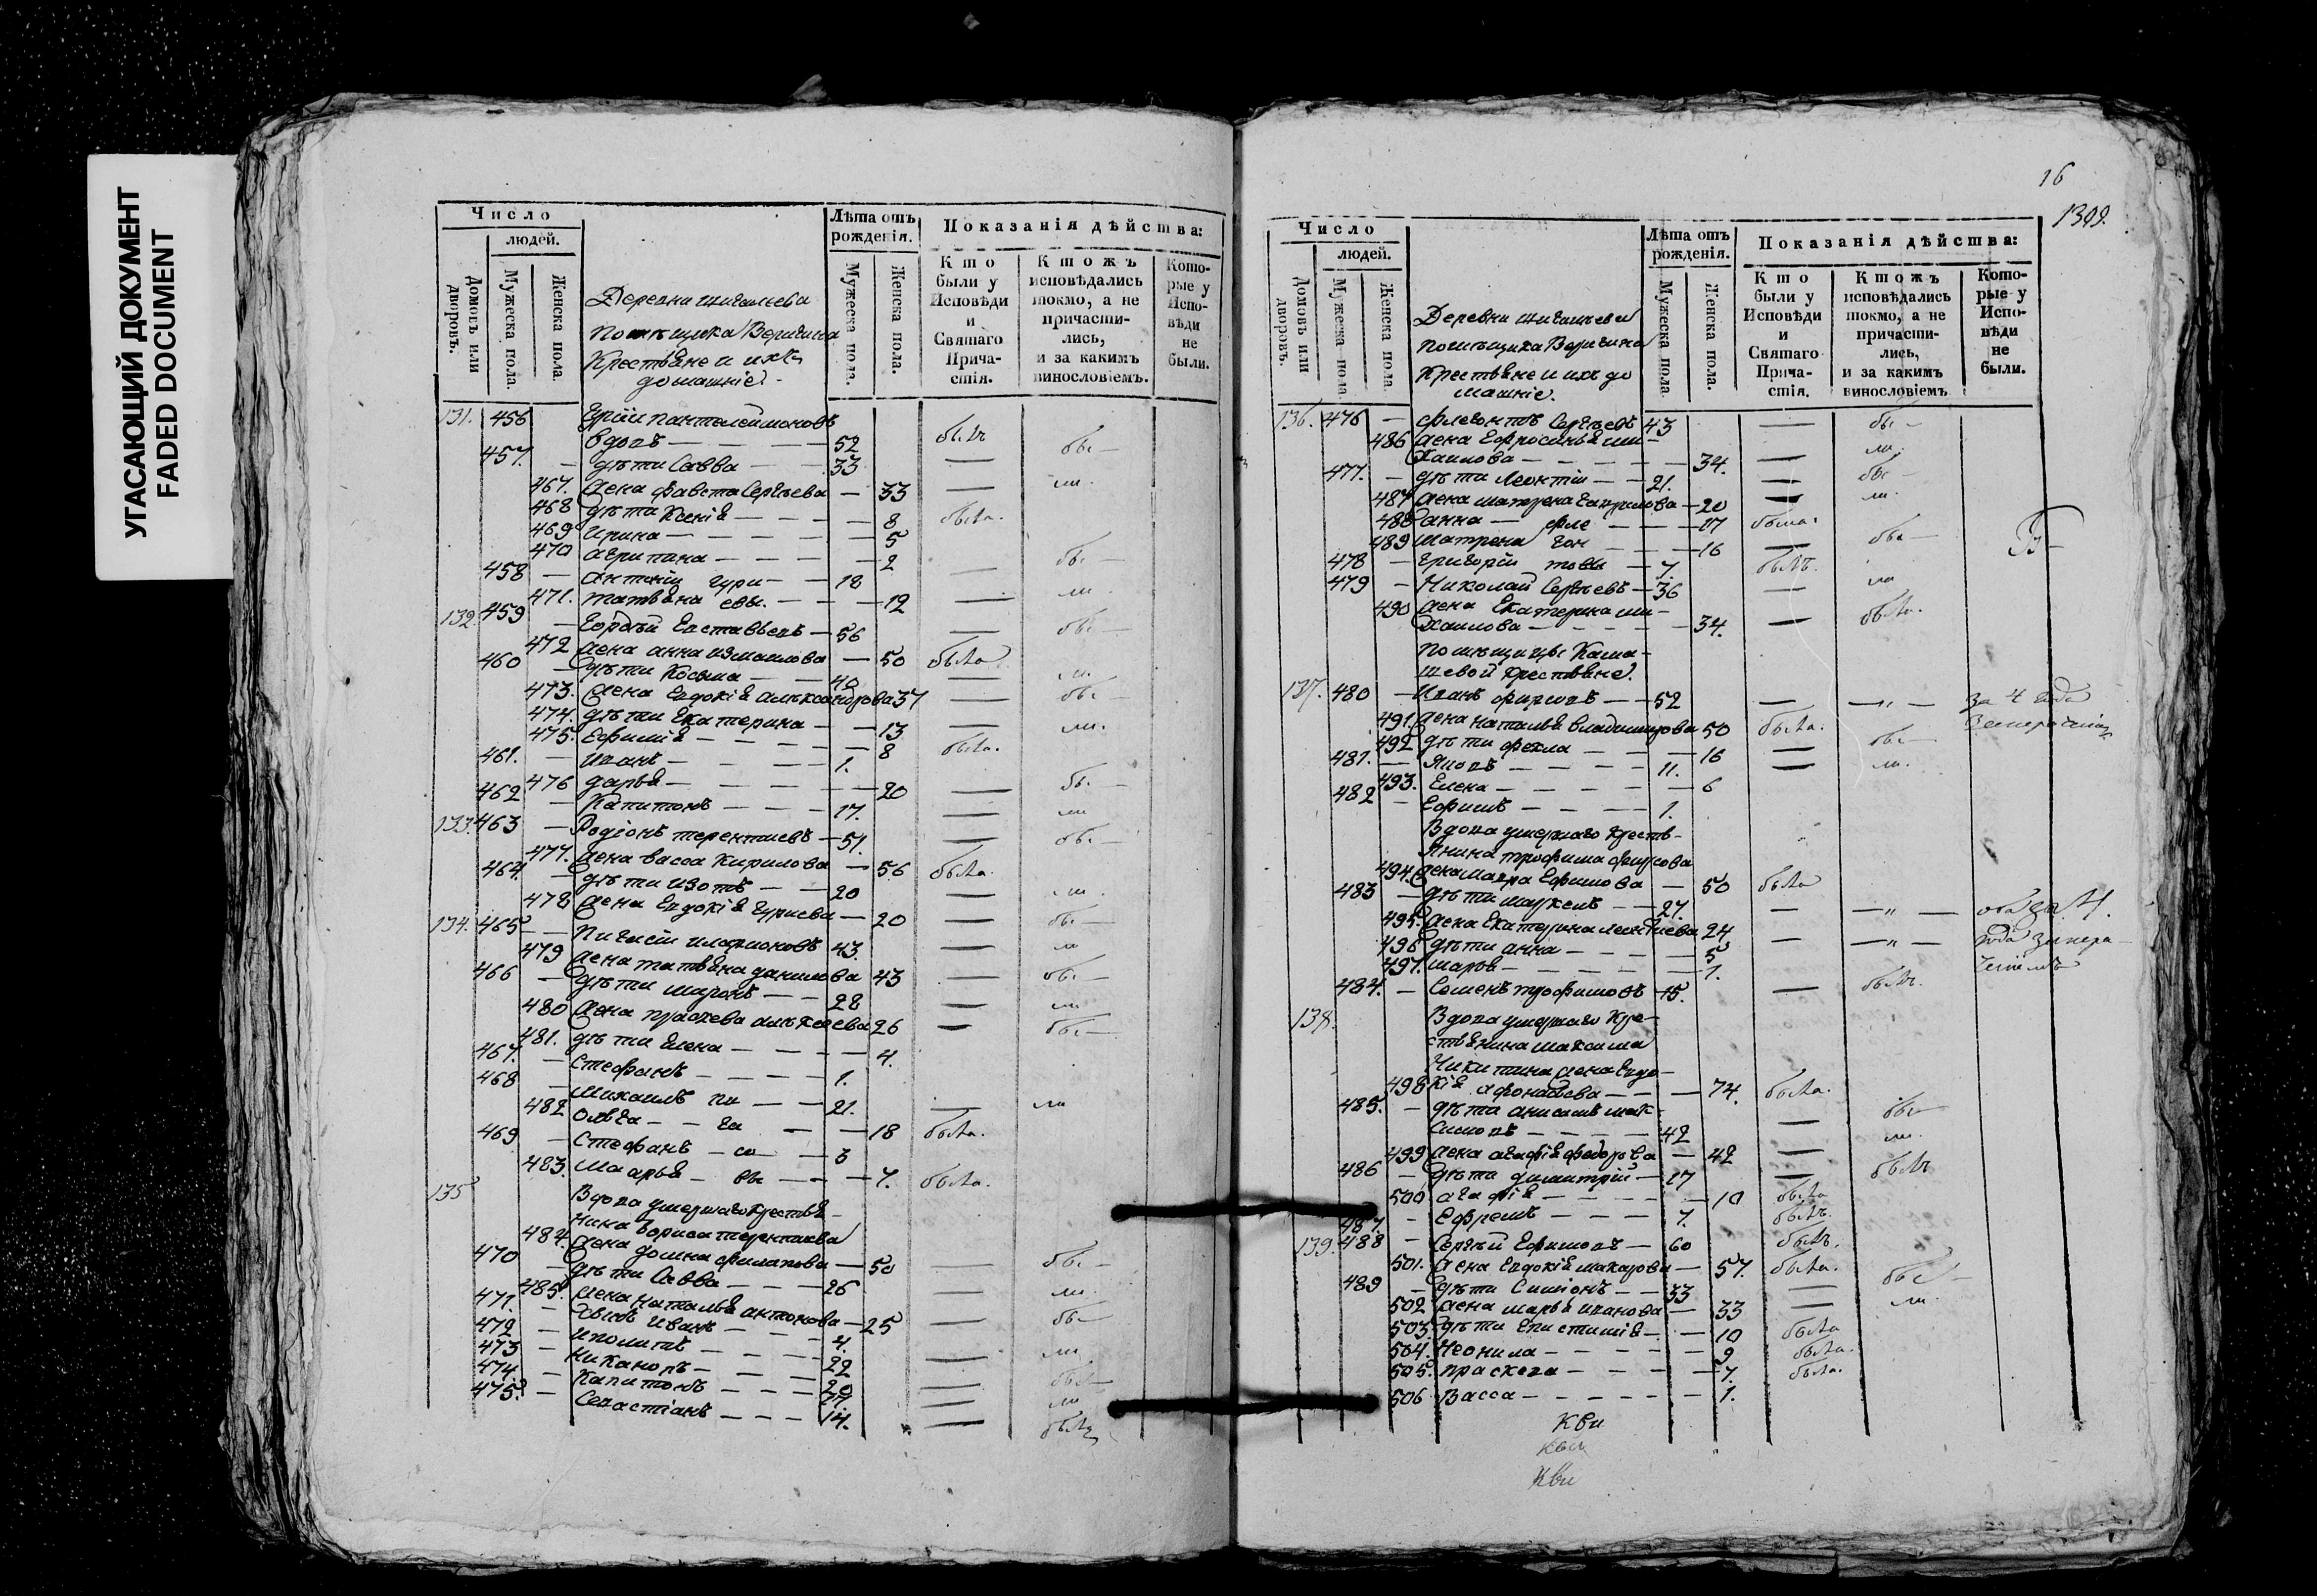 УГАСАЮЩИЙ ДОКУМЕНТ
FADED DOCUMENT
Число
людей.
Домовъ или дворовъ.
Мужеска пола.
Женска пола.
Лѣта отъ рожденія.
Мужеска пола.
Женска пола.
Показанія дѣйства:
Кто были у Исповѣди и Святаго Причастія.
Ктожъ исповѣдались токмо, а не причастились, и за какимъ винословіемъ.
Которые у Исповѣди не были.
Деревни
помѣщика Веригина
Крестьяне и ихъ
домашніе.
131. 456 Гурій Пантелеймоновъ
вдовъ — 52 былъ
457. — дѣти Савва — 33 —
467. жена Фавста Сергѣева — 33 —
468 дѣти Ксенія — 8 была.
469 Ирина — 5
470 Агрипина — 2
458 — Антоній Гурі — 18 —
471. Татьяна евы. — 12 —
132. 459 — Гордѣй Евставьевъ — 56 —
472 жена Анна Измаилова — 50 была
460 — дѣти Косьма — 40 —
473. жена Евдокія Алѣксандрова 37 —
474. дѣти Екатерина — 13 —
475. Ефимія — 8 была.
461. — Иванъ — 1.
476 Дарья — 20 —
462 — Капитонъ — 17. —
133. 463 — Родіонъ Терентиевъ — 51. —
477. жена Васса Кирилова — 56 была.
464. — дѣти Изотъ — 20 —
478 жена Евдокія Гуриева — 20 —
134. 465 — Иларионовъ 43. —
479 жена Татьяна Данилова 43 —
466 — дѣти Миронъ — 28 —
480 жена Праскева Алѣксеева 26 —
481. дѣти Елена — 4.
467. — Стефанъ — 1.
468 — Михаилъ пи — 21. —
482 Ольга — га — 18 была.
469 — Стефанъ — со — 3
483. Марья — вы — 7. была.
135 Вдова умершаго крестья-
нина Бориса Терентиева
484. жена Домна Филатова — 50 —
470 — дѣти Савва — 26 —
485. жена Наталья Антонова — 25 —
471. — сынъ Иванъ — 4.
472 — Иполитъ — 22 —
473 — Никаноръ — 20 —
474. — Капитонъ — —
475. — Севастіанъ — 14. —
16
1399.
Число
людей.
Домовъ или дворовъ.
Мужеска пола.
Женска пола.
Лѣта отъ рожденія.
Мужеска пола.
Женска пола.
Показанія дѣйства:
Кто были у Исповѣди и Святаго Причастія.
Ктожъ исповѣдались токмо, а не причастились, и за какимъ винословіемъ.
Которые у Исповѣди не были.
Деревни
помѣщика Веригина
Крестьяне и ихъ до
машніе.
136. 476 — Флегонтъ Сергѣевъ 43 —
486 жена Ефросинья Ми-
хаилова — 34. —
477. — дѣти Леонтій — 21. —
487 жена Матрена Гаврилова — 20 —
488 Анна — Фле — 17 была.
489 Матрена гон — 16 —
478 — Григорій товы — 7. былъ.
479 — Николай Сергѣевъ — 36 —
490 жена Екатерина Ми-
хаилова — 34. — была.
помѣщицы Кала-
шевой крестьяне.
137. 480 — Иванъ Фирсовъ — 52 — — " — за 4 года
491. жена Наталья Владимирова 50 была.
492 дѣти Фекла — 16 —
481. — Яковъ — 11. —
493. Елена — 6
482 — Ефимъ — 1.
Вдова умершаго кресть-
янина Трофима Фирсова
494. жена Мавра Ефимова — 50 была
483 — дѣти Маркелъ — 27. — — " — оба за 4.
495. жена Екатерина Леонтиева 24 — — " — года
496 дѣти Анна — 5
497. Марья — 1.
484. — Семенъ Трофимовъ — 15. — былъ.
138. Вдова умершаго кре-
стьянина Максима
Никитина жена Евдо-
498 кія Афонасьева — 74. была.
485. — дѣти Анисимъ Мак-
симовъ — 42 —
499 жена Агафія Федорова — 42 —
486 — дѣти Димитрій — 17 — былъ
500 Агафія — 10 была
487. — Ефремъ — 7. былъ.
139. 488 — Сергѣй Ефимовъ — 60 былъ.
501. жена Евдокія Макарова — 57. была.
489 — дѣти Симіонъ — 33 —
502 жена Марья Иванова — 33 —
503. дѣти Епистимія — 10 была
504. Неонила — 9 была.
505. Праскева — 7. была.
506 Васса — 1.